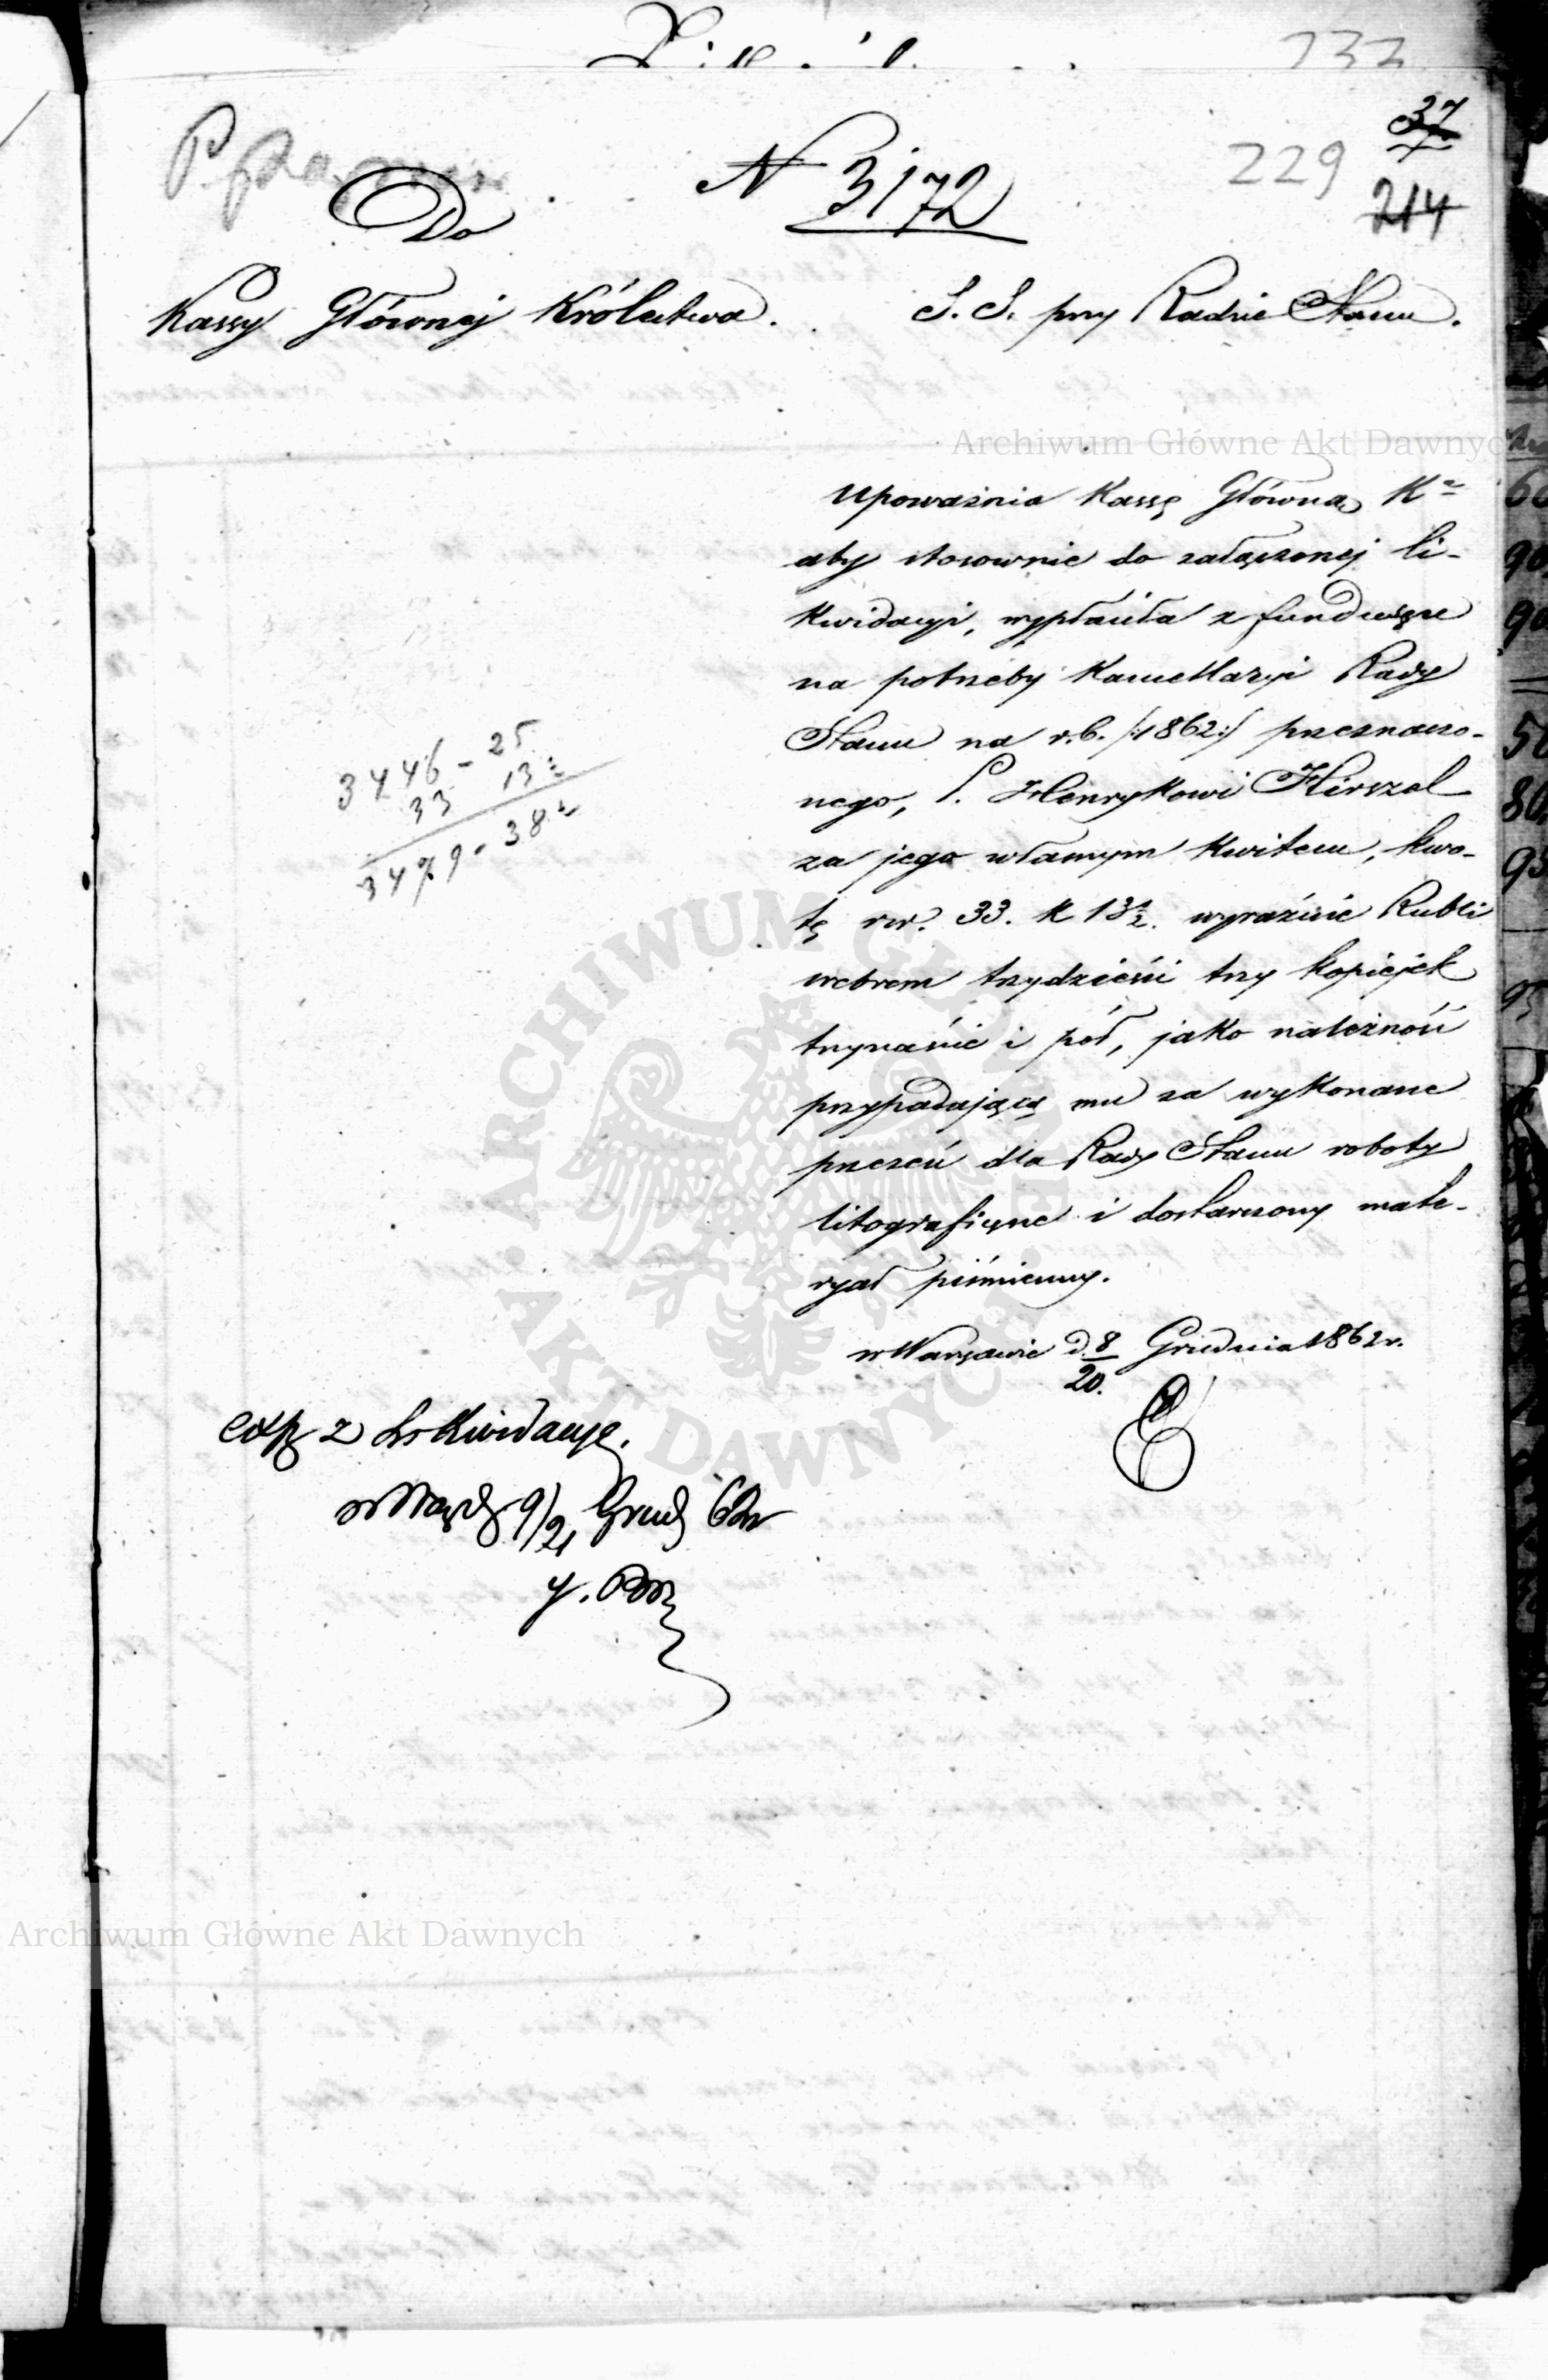 232
37
229
214
N 3172
Do
Kassy Głównej Królestwa.
S. S. przy Radzie Stanu.
Archiwum Główne Akt Dawnych
Upoważnia Kassę Główną Kr
aby stosownie do załączonej li-
kwidacyi, wypłaciła z funduszu
na potrzeby Kancellaryi Rady
Stanu na r.b. /:1862:/ przeznaczo-
nego, P. Henrykowi Hirszel
za jego własnym kwitem, kwo-
tę rsr. 33. k 13½. wyraźnie Rubli
srebrem trzydzieści trzy kopiejek
trzynaście i pół, jako należność
przypadającą mu za wykonane
przezeń dla Rady Stanu roboty
litograficzne i dostarczony mate-
ryał piśmienny.
w Warszawie d. 8/20. Grudnia 1862 r.
3446 - 25
33 13½
3479 - 38½
exp z Likwidacyą.
9/21 Grud 62r
ARCHIWUM GŁÓWNE
AKT DAWNYCH
Archiwum Główne Akt Dawnych